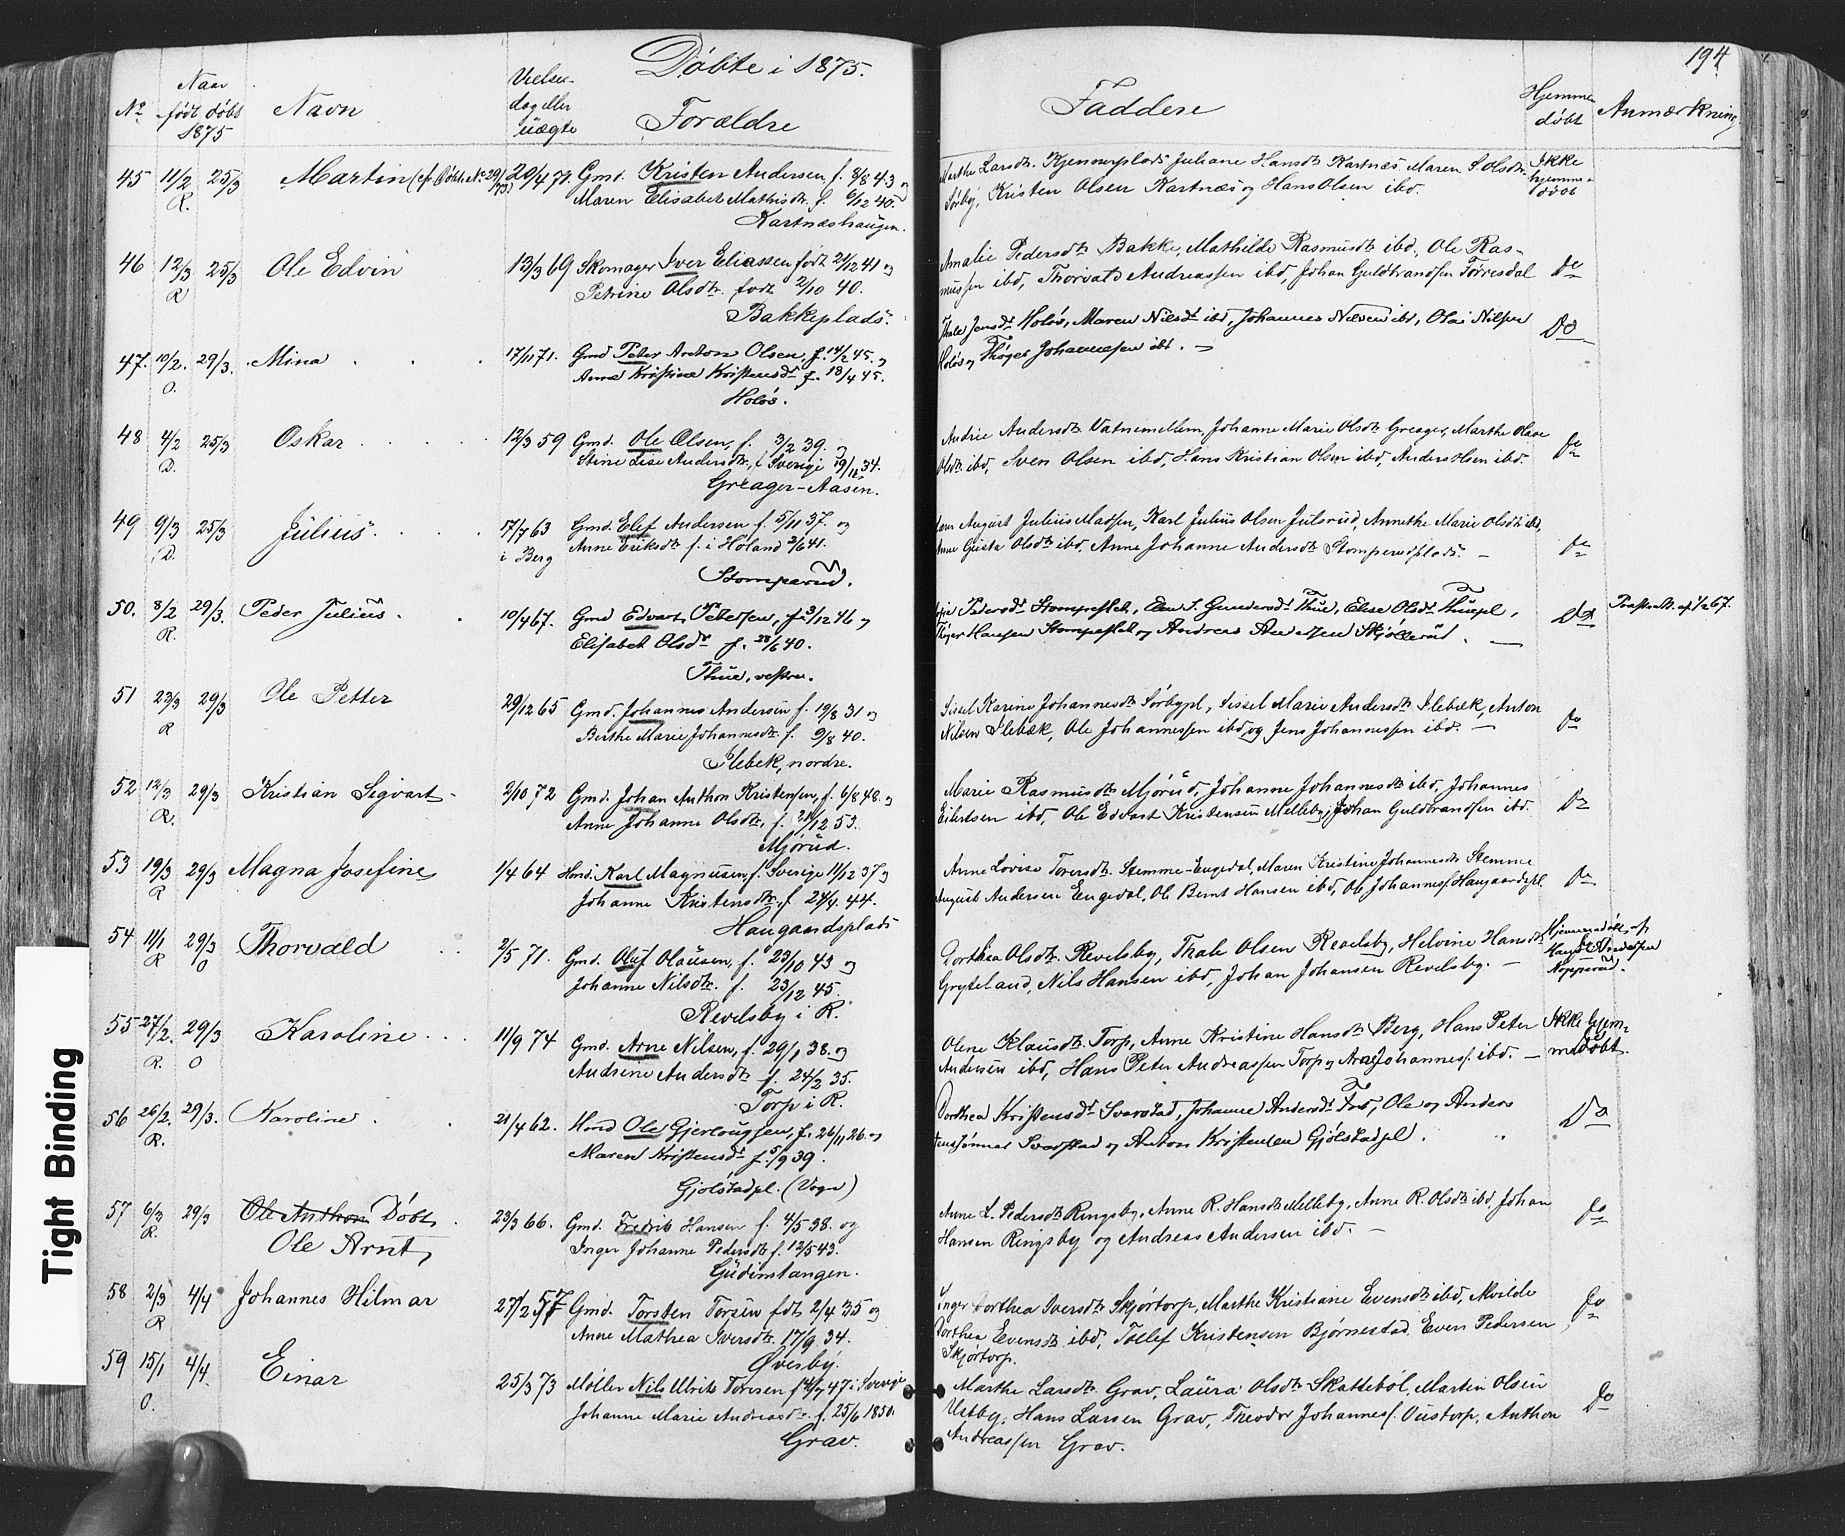 Døbte i 1875.
194
No
Naar
født døbt
1875
Navn
Vielses-
dag eller
uægte
Forældre
Faddere
Hjemme
døbt
Anmærkning
45 11/2 25/3 Martin (cfr. Døbte No 29/73) 29/4 71. Gmd. Kristen Andersen f. 8/8 43 og
R. Maren Elisabet Mathisdtr. f. 6/12 40.
Kartnæshaugen.
Marthe Larsdtr. Kjennerplads Juliane Hansdtr Kartnæs, Maren S. Olsdtr.
Sørby, Kristen Olsen Kartnæs og Hans Olsen ibd.
Ikke
hjemme-
døbt
46 12/3 25/3 Ole Edvin 13/3 69 Skomager Iver Eliassen født 24/12 41 og
R Petrine Olsdtr. født 2/10 40.
Bakkeplads.
Amalie Pedersdtr Bakke, Mathilde Rasmusdtr ibd., Ole Ras-
mussen ibd, Thorvald Andreassen ibd, Johan Guldbrandsen Torresdal
Do
47. 10/2. 29/3. Mina 17/11 71. Gmd Peter Anton Olsen, f. 14/2 45. og
O. Anne Kristine Kristensdr f. 18/4 45.
Holøs.
Thale Jensdr Holøs, Maren Nilsdr ibd, Johannes Nilsen ibd, Olai Nilsen
Holøs og Thøger Johannessen ibd.
Do
48 4/2 25/3 Oskar 12/3 59 Gmd. Ole Olsen, f. 3/2 39. og
R. Stine Lise Andersdtr., f. i Sverige 19/12 34.
Greager-Aasen.
Andrie Andersdtr Vatnemellem, Johanne Marie Olsdtr Greager, Marthe Olave
Olsdtr ibd, Sven Olsen ibd, Hans Kristian Olsen ibd, Anders Olsen ibd.
Do
49 9/3 25/3 Julius 17/7 63 Gmd. Elef Andersen f. 5/11 37. og
R. i Berg Anne Eriksdtr f. i Høland 2/6 41.
Stomperud.
August Julius Madsen, Karl Julius Olsen Julsrud, Annethe Marie Olsdtr ibd,
Anne Gusta Olsdtr ibd, Anne Johanne Andersdtr Stomperudplads.
Do
50. 8/2 29/3. Peder Julius. 10/4 67. Gmd Edvart Petersen, f. 3/12 46 og
R. Elisabet Olsdr f. 28/6 40.
Thue, vestre.
Pedersdr Stompeflet, Elen S. Gundersdr Thue, Elise Olsdr Thuepl,
Tøger Hansen Stompeflet og Andreas Andersen Skjøllerud.
Do
51 23/3 29/3 Ole Petter 29/12 65 Gmd. Johannes Andersen f. 19/8 31 og
R Berthe Marie Johannesdtr. f. 9/8 40.
Ilebek, nordre.
Sissel Karine Johannesdtr Sørbypl, Sissel Marie Andersdtr Ilebæk, Anton
Nilsen Ilebæk, Ole Johannessen ibd og Jens Johannessen ibd.
Do
52 12/3 29/3 Kristian Sigvart 2/10 72 Gmd. Johan Anthon Kristensen, f. 6/8 48. og
R. Anne Johanne Olsdtr, f. 28/12 53.
Mjørud.
Marie Rasmusdtr Mjørud, Johanne Johannesdtr ibd, Johannes
Eilertsen ibd, Ole Edvart Kristensen Melleby, Johan Guldbrandsen ibd.
Do
53 19/3 29/3 Magna Josefine 1/4 64 Hmd. Karl Magnusen, f. Sverige 11/12 37 og
R Johanne Kristensdtr. f 24/4. 44.
Haugaardsplads
Anne Lovise Toresdtr. Stemme-Engedal, Maren Kristine Johannesdtr Stemme
August Andersen Engedal, Ole Bernt Hansen ibd, Ole Johannesf. Haugaardspl.
Do
54 11/1 29/3 Thorvald 2/5 71. Gmd. Oluf Olausen, f. 23/10 43 og
R O Johanne Nilsdtr. f. 23/12 45.
Revelsby i R.
Dorthea Olsdtr. Revelsby, Thale Olsen Revelsby, Helvine Hansdtr
Gryteland, Nils Hansen ibd, Johan Johansen Revelsby.
Hjemmedøbt af
Andersen
Nopperud.
55 27/2. 29/3 Karoline 11/9 74 Gmd. Arne Nilsen, f. 29/1 38. og
R. O Andrine Andersdtr f. 24/2 35.
Torp i R.
Olene Klausdtr. Torp, Anne Kristine Hansdtr Berg, Hans Peter
Andersen ibd, Hans Peter Andreassen Torp og Arne Johannesf. ibd.
Ikke hjem-
medøbt.
56 26/2. 29/3. Karoline 21/4 62. Hmd Ole Gjerlougsen, f. 26/11 26. og
R. Maren Kristensdr f. 5/9 39.
Gjølstadpl. (Vogn)
Dorthea Kristensdr Svarstad, Johanne Andersdr , Ole og Anders
Svarstad og Anton Kristensen Gjølstadpl.
Do
57 6/3 29/3 Ole Anthon Døbt 23/3 66. Gmd. Fredrik Hansen f. 4/5 38. og
R. Ole Arnt, Inger Johanne Pedersdtr f. 12/5 43.
Gudimtangen.
Anne L. Pedersdtr Ringsby, Anne R. Hansdtr Melleby, Anne R. Olsdtr ibd, Johan
Hansen Ringsby og Andreas Andersen ibd.
Do
58 2/3 4/4 Johannes Hilmar 27/12 57 Gmd. Torsten Torsen født 2/4 35 og
R Anne Mathea Iversdtr. 17/9 34.
Øvesby.
Inger Dorthea Iversdtr Skjørtorp, Marthe Kristiane Evensdtr ibd, Alvilde
Dorthea Evensdtr ibd, Tollef Kristensen Bjørnestad, Even Pedersen
Skjørtorp.
Do
59 15/1 4/4. Einar 25/3 73 Møller Nils Ulrik Toresen f 4/7 47 i Sverige
O. Johanne Marie Andreasdtr. f. 25/6 1850.
Grav.
Marthe Larsdtr. Grav, Laura Olsdtr Skattebøl, Martin Olsen
Ustby, Hans Larsen Grav, Theodor Johannesf. Oustorp, Anthon
Andreassen Grav.
Do
Tight Binding